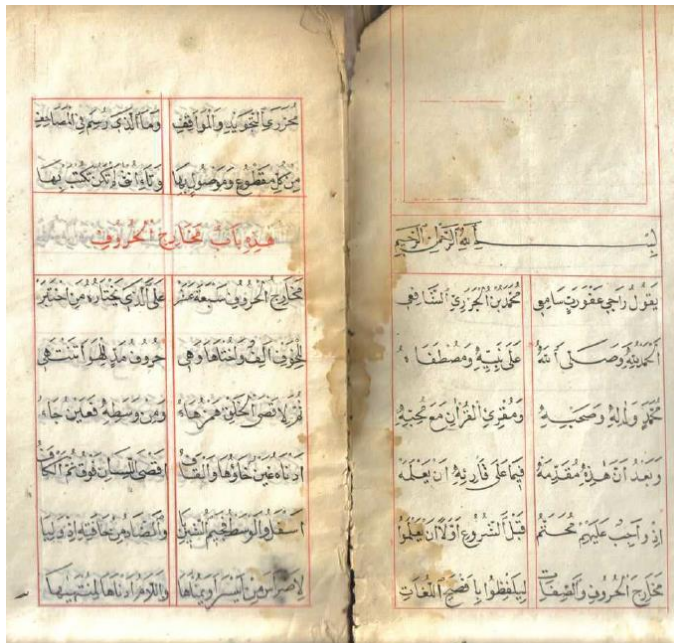 بسم الله الرحمن الرحيم
يَقُولُ رَاجِي عَفْوِ رَبٍّ سَامِعِ مُحَمَّدُ بْنُ الْجَزَرِيِّ الشَّافِعِي
الْحَمْدُ لِلَّهِ وَصَلَّى اللهُ عَلَى نَبِيِّهِ وَمُصْطَفَاهُ
مُحَمَّدٍ وَآلِهِ وَصَحْبِهِ وَمُقْرِئِ الْقُرْآنِ مَعَ مُحِبِّهِ
وَبَعْدُ أَنَّ هَذِهِ مُقَدِّمَهْ فِيمَا عَلَى قَارِئِهِ أَنْ يَعْلَمَهْ
إِذْ وَاجِبٌ عَلَيْهِمُ مُحَتَّمُ قَبْلَ الشُّرُوعِ أَوَّلًا أَنْ يَعْلَمُوا
مَخَارِجَ الْحُرُوفِ وَالصِّفَاتِ لِيَلْفِظُوا بِأَفْصَحِ اللُّغَاتِ
مُحَرِّرِي التَّجْوِيدِ وَالْمَوَاقِفِ وَمَا الَّذِي رُسِمَ فِي الْمَصَاحِفِ
مِنْ كُلِّ مَقْطُوعٍ وَمَوْصُولٍ بِهَا وَتَاءِ أُنْثَى لَمْ تَكُنْ تُكْتَبْ بِهَا
هذه باب مخارج الحروف
مَخَارِجُ الْحُرُوفِ سَبْعَةَ عَشَرْ عَلَى الَّذِي يَخْتَارُهُ مَنِ اخْتَبَرْ
لِلْجَوْفِ أَلِفٌ وَأُخْتَاهَا وَهِي حُرُوفُ مَدٍّ لِلْهَوَاءِ تَنْتَهِي
ثُمَّ لِأَقْصَى الْحَلْقِ هَمْزٌ هَاءُ وَمِنْ وَسَطِهِ فَعَيْنٌ حَاءُ
أَدْنَاهُ غَيْنٌ خَاؤُهَا وَالْقَافُ أَقْصَى اللِّسَانِ فَوْقُ ثُمَّ الْكَافُ
أَسْفَلُ وَالْوَسَطُ فَجِيمُ الشِّينُ يَا وَالضَّادُ مِنْ حَافَتِهِ إِذْ وَلِيَا
لِاضْرَاسَ مِنْ أَيْسَرَ أَوْ يُمْنَاهَا وَاللَّامُ أَدْنَاهَا لِمُنْتَهَاهَا